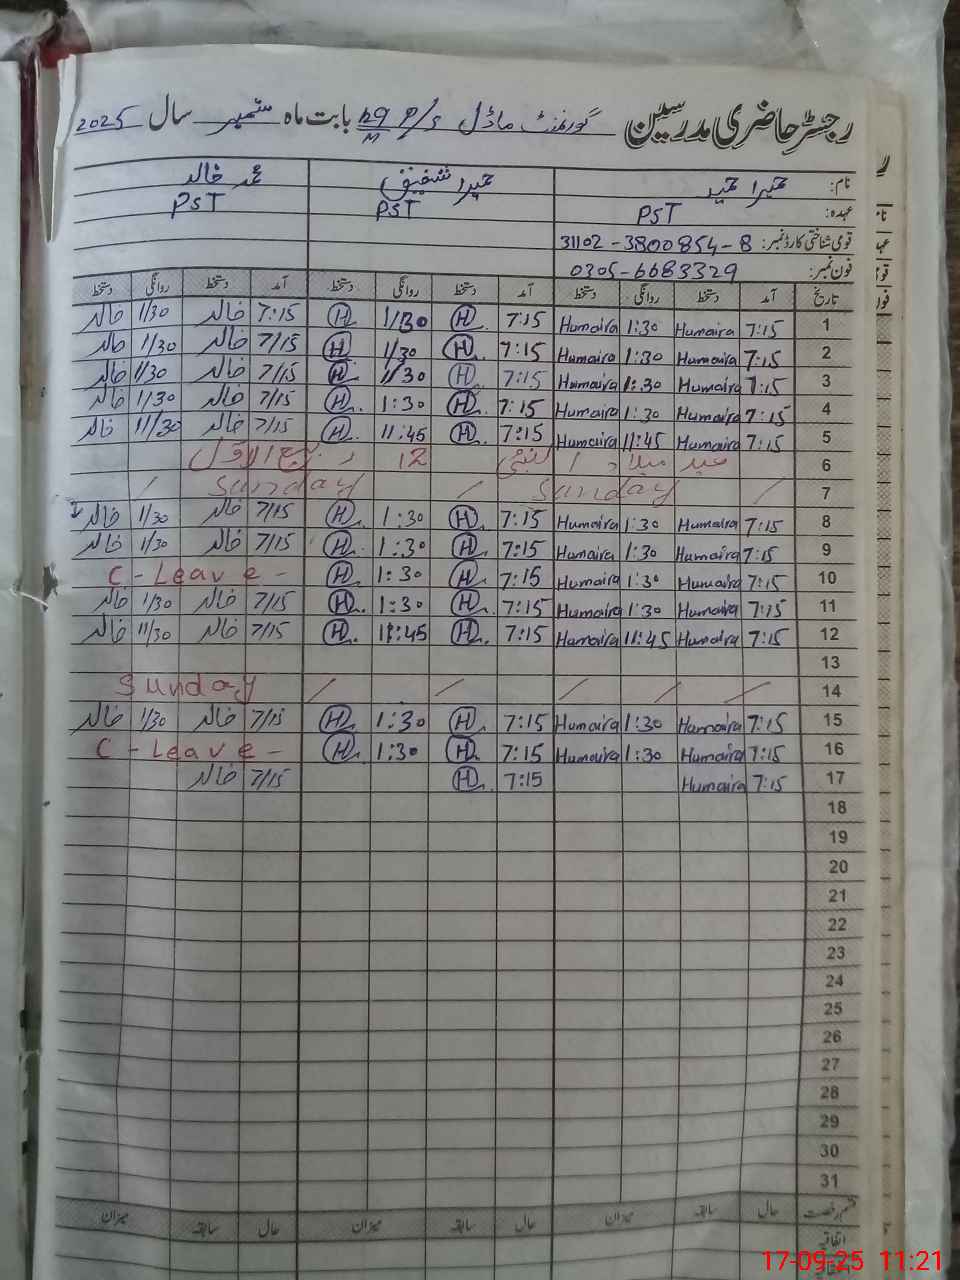 رجسٹر حاضری مدرسین گورنمنٹ ماڈل P/S 69 M بابت ماہ ستمبر سال 2025
نام: حمیرا حمید حمیرا شفیق محمد خالد
عہدہ: PST PST PST
قومی شناختی کارڈ نمبر: 31102-3800854-8
فون نمبر: 0305-6683329
تاریخ آمد دستخط روانگی دستخط آمد دستخط روانگی دستخط آمد دستخط روانگی دستخط
1 7:15 Humaira 1:30 Humaira 7:15 H 1/30 H 7:15 خالد 1/30 خالد
2 7:15 Humaira 1:30 Humaira 7:15 H 1/30 H 7/15 خالد 1/30 خالد
3 7:15 Humaira 1:30 Humaira 7:15 H 11/30 H 7/15 خالد 11/30 خالد
4 7:15 Humaira 1:30 Humaira 7:15 H 1:30 H 7/15 خالد 1/30 خالد
5 7:15 Humaira 11:45 Humaira 7:15 H 11:45 H 7/15 خالد 11/30 خالد
6 عید میلاد النبی 12 ربیع الاول
7 / Sunday / Sunday /
8 7:15 Humaira 1:30 Humaira 7:15 H 1:30 H 7/15 خالد 1/30 خالد
9 7:15 Humaira 1:30 Humaira 7:15 H 1:30 H 7/15 خالد 1/30 خالد
10 7:15 Humaira 1:30 Humaira 7:15 H 1:30 H C-Leave-
11 7:15 Humaira 1:30 Humaira 7:15 H 1:30 H 7/15 خالد 1/30 خالد
12 7:15 Humaira 11:45 Humaira 7:15 H 11:45 H 7/15 خالد 11/30 خالد
13
14 / / / / / Sunday
15 7:15 Humaira 1:30 Humaira 7:15 H 1:30 H 7/15 خالد 1/30 خالد
16 7:15 Humaira 1:30 Humaira 7:15 H 1:30 H C-Leave-
17 7:15 Humaira 7:15 H 7/15 خالد
18
19
20
21
22
23
24
25
26
27
28
29
30
31
حال سابقہ میزان حال سابقہ میزان حال سابقہ میزان
اتفاقیہ
17-09-25 11:21